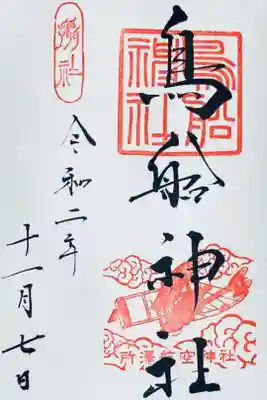 鳥船神社
鳥船
神社
所澤航空神社
令和二年
十一月七日